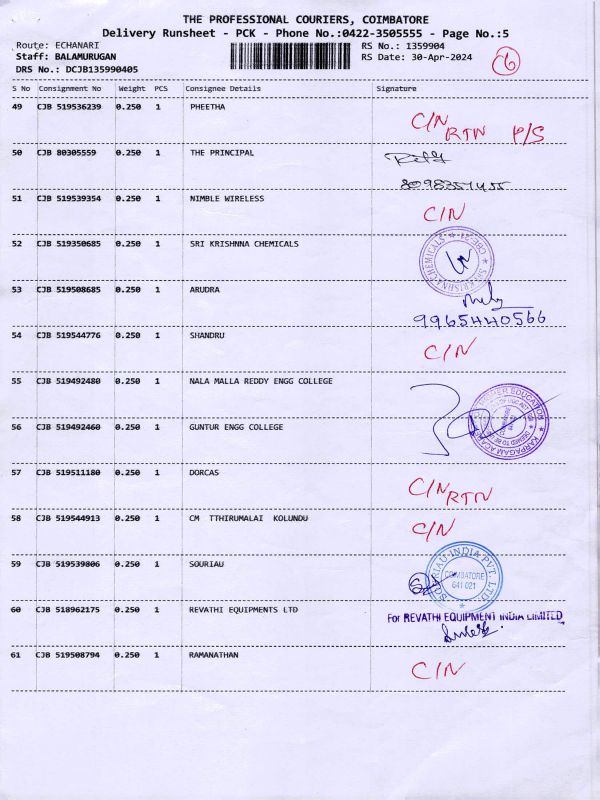 THE PROFESSIONAL COURIERS, COIMBATORE
Delivery Runsheet - PCK - Phone No.:0422-3505555 - Page No.:5
Route: ECHANARI RS No.: 1359904
Staff: BALAMURUGAN RS Date: 30-Apr-2024 6
DRS No.: DCJB135990405
S No Consignment No Weight PCS Consignee Details Signature
49 CJB 519536239 0.250 1 PHEETHA
C/N RTN P/S
50 CJB 80305559 0.250 1 THE PRINCIPAL
51 CJB 519539354 0.250 1 NIMBLE WIRELESS
C/N
52 CJB 519350685 0.250 1 SRI KRISHNNA CHEMICALS
SRI KRISHNA CHEMICALS
53 CJB 519508685 0.250 1 ARUDRA
9965440566
54 CJB 519544776 0.250 1 SHANDRU
C/N
55 CJB 519492480 0.250 1 NALA MALLA REDDY ENGG COLLEGE
56 CJB 519492460 0.250 1 GUNTUR ENGG COLLEGE
57 CJB 519511180 0.250 1 DORCAS
C/N RTN
58 CJB 519544913 0.250 1 CM TTHIRUMALAI KOLUNDU
C/N
59 CJB 519539806 0.250 1 SOURIAU
SOURIAU INDIA PVT. LTD.
COIMBATORE
641 021
60 CJB 518962175 0.250 1 REVATHI EQUIPMENTS LTD
For REVATHI EQUIPMENT INDIA LIMITED
61 CJB 519508794 0.250 1 RAMANATHAN
C/N